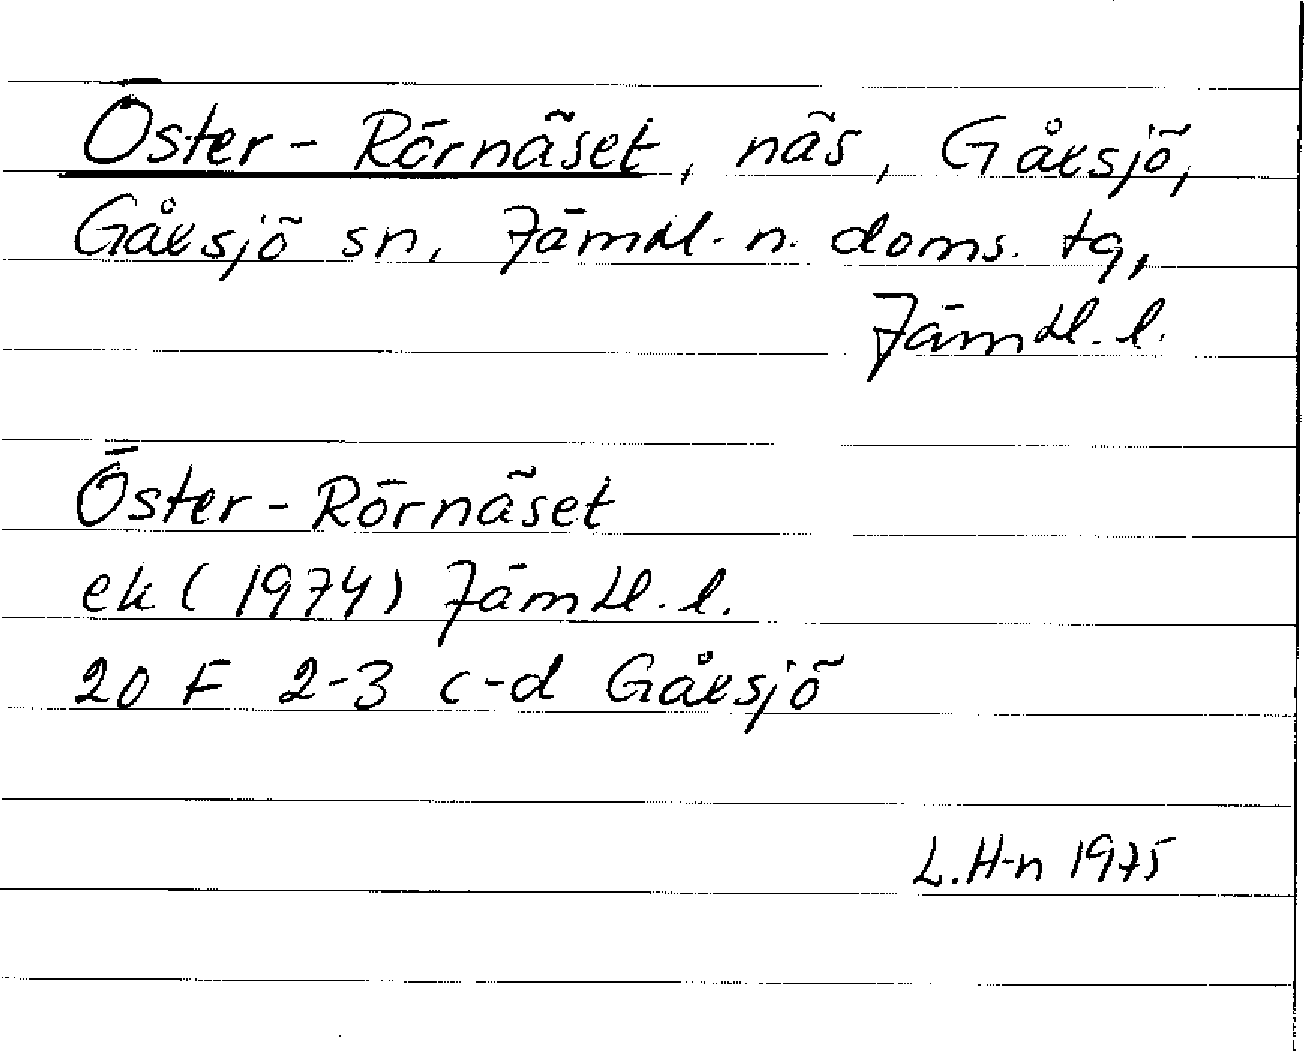 Öster-Rörnäset, näs, Gåxsjö,
Gåxsjö sn, Jämtl. n. doms. tg,
Jämtl. l.
Öster-Rörnäset
ek (1974) Jämtl. l.
20 F 2-3 c-d Gåxsjö
L. H-n 1975